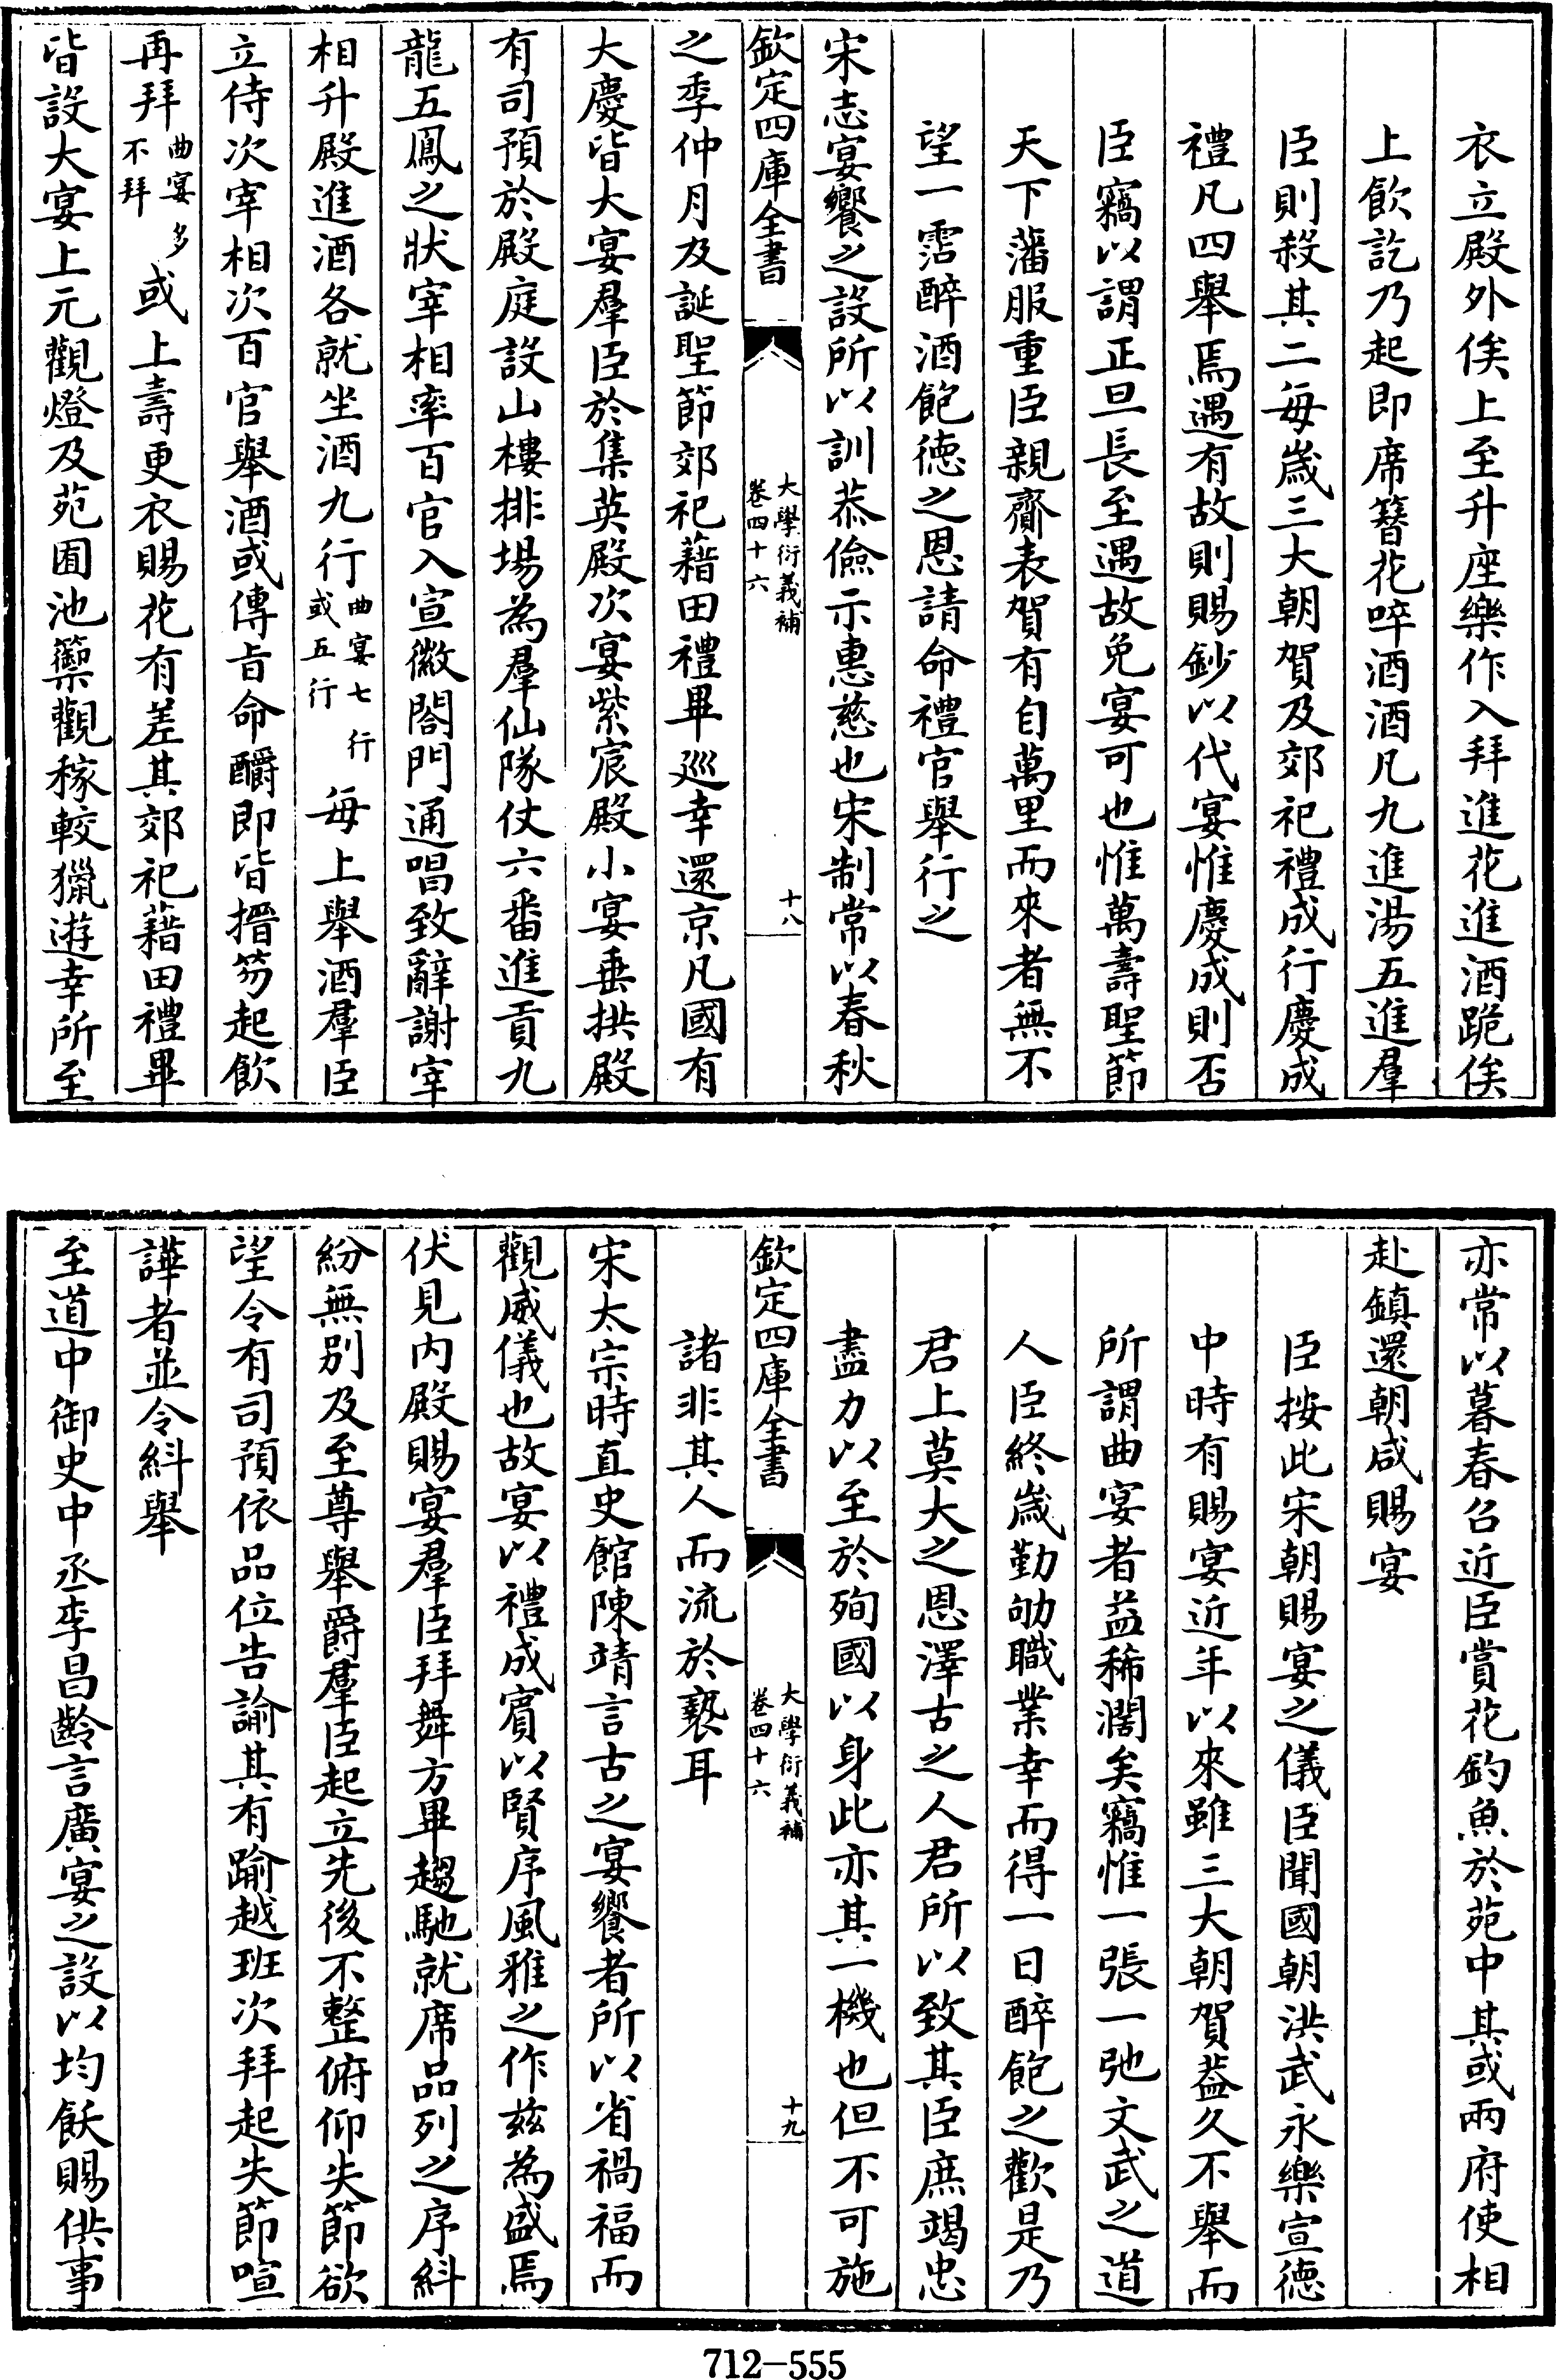 衣立殿外俟上至升座樂作入拜進花進酒跪俟
上飲訖乃起即席簪花啐酒酒凡九進湯五進羣
臣則殺其二每歲三大朝賀及郊祀禮成行慶成
禮凡四舉焉遇有故則賜鈔以代宴惟慶成則否
臣竊以謂正旦長至遇故免宴可也惟萬壽聖節
天下藩服重臣親齎表賀有自萬里而來者無不
望一霑醉酒飽徳之恩請命禮官舉行之
宋志宴饗之設所以訓恭儉示惠慈也宋制常以春秋
欽定四庫全書
大學衍義補
卷四十六
十八
之季仲月及誕聖節郊祀藉田禮畢巡幸還京凡國有
大慶皆大宴羣臣於集英殿次宴紫宸殿小宴垂拱殿
有司預於殿庭設山樓排場為羣仙隊仗六番進貢九
龍五鳳之狀宰相率百官入宣徽閤門通唱致辭謝宰
相升殿進酒各就坐酒九行曲宴七行或五行每上舉酒羣臣
立侍次宰相次百官舉酒或傳㫖命釂即皆搢笏起飲
再拜曲宴多不拜或上壽更衣賜花有差其郊祀藉田禮畢
皆設大宴上元觀燈及苑囿池籞觀稼較獵遊幸所至
亦常以暮春召近臣賞花釣魚於苑中其或兩府使相
赴鎮還朝咸賜宴
臣按此宋朝賜宴之儀臣聞國朝洪武永樂宣徳
中時有賜宴近年以來雖三大朝賀葢久不舉而
所謂曲宴者益稀濶矣竊惟一張一弛文武之道
人臣終歲勤劬職業幸而得一日醉飽之歡是乃
君上莫大之恩澤古之人君所以致其臣庶竭忠
盡力以至於殉國以身此亦其一機也但不可施
欽定四庫全書
大學衍義補
卷四十六
十九
諸非其人而流於褻耳
宋太宗時直史館陳靖言古之宴饗者所以省禍福而
觀威儀也故宴以禮成賓以賢序風雅之作兹為盛焉
伏見内殿賜宴羣臣拜舞方畢趨馳就席品列之序糾
紛無别及至尊舉爵羣臣起立先後不整俯仰失節欲
望令有司預依品位告諭其有踰越班次拜起失節喧
譁者並令糾舉
至道中御史中丞李昌齡言廣宴之設以均飫賜供事
712-555